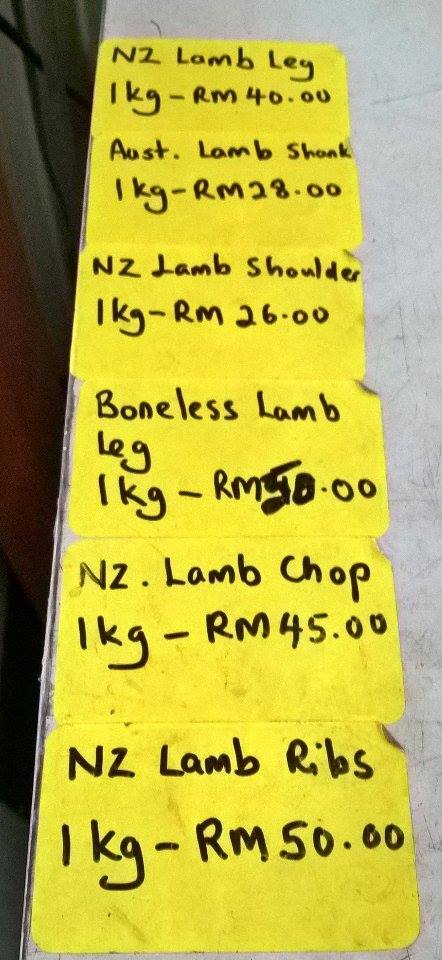 NZ Lamb Leg
1kg - RM 40.00
Aust. Lamb Shank
1kg - RM 28.00
NZ Lamb Shoulder
1kg - RM 26.00
Boneless Lamb
Leg
1kg - RM50.00
NZ. Lamb Chop
1kg - RM 45.00
NZ Lamb Ribs
1kg - RM 50.00